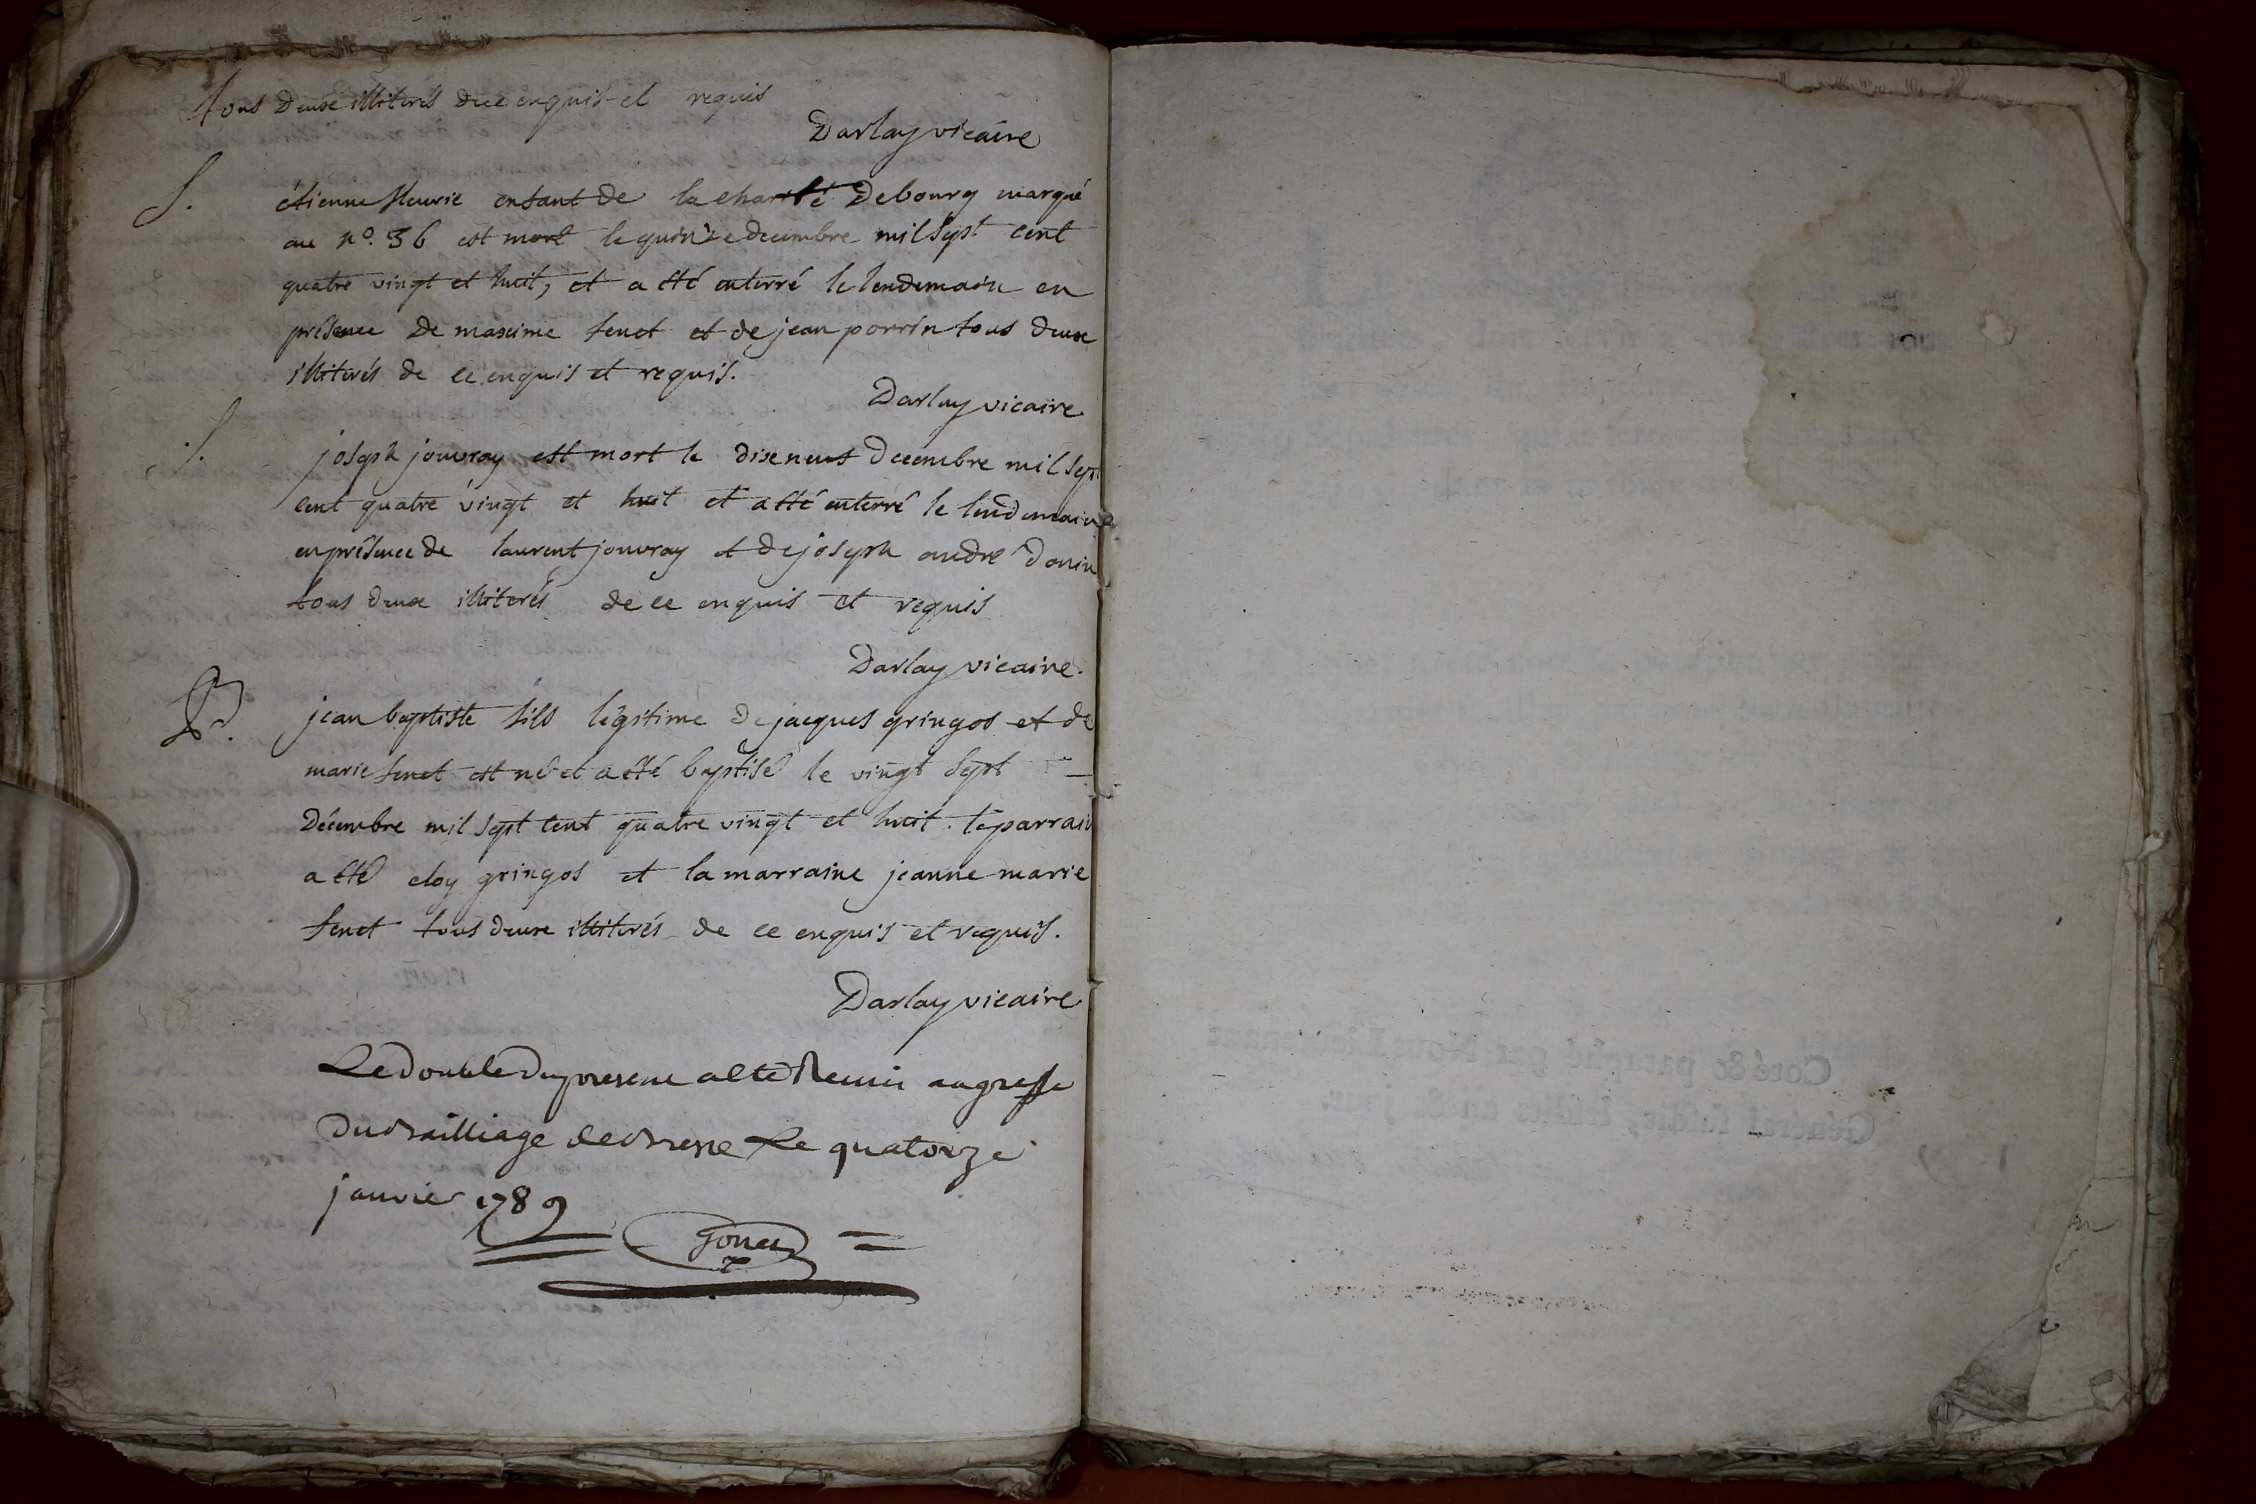 tous deux illiterés de ce enquis et requis
Darlay vicaire
S. étienne fleurie enfant de la charité de bourg marqué
au no. 36 est mort le quinze decembre mil sept cent
quatre vingt et huit, et a été enterré le lendemain en
présence de maxime fenet et de jean porrin tous deux
illiterés de ce enquis et requis.
Darlay vicaire
S. joseph jouvray est mort le dixneuf decembre mil sept
cent quatre vingt et huit et a été enterré le lendemain
en présence de laurent jouvray et de joseph andré donin
tous deux illiterés de ce enquis et requis
Darlay vicaire.
B. jean baptiste fils légitime de jacques gringos et de
marie fenet est né et a été baptisé le vingt sept
décembre mil sept cent quatre vingt et huit. le parrain
a été eloy gringos et la marraine jeanne marie
fenet tous deux illiterés de ce enquis et requis.
Darlay vicaire
Le double du present a été Remis au greffe
du Bailliage de Bresse Le quatorze
janvier 1789
Coté & paraphé par Nous Lieutenant
Général susdit,